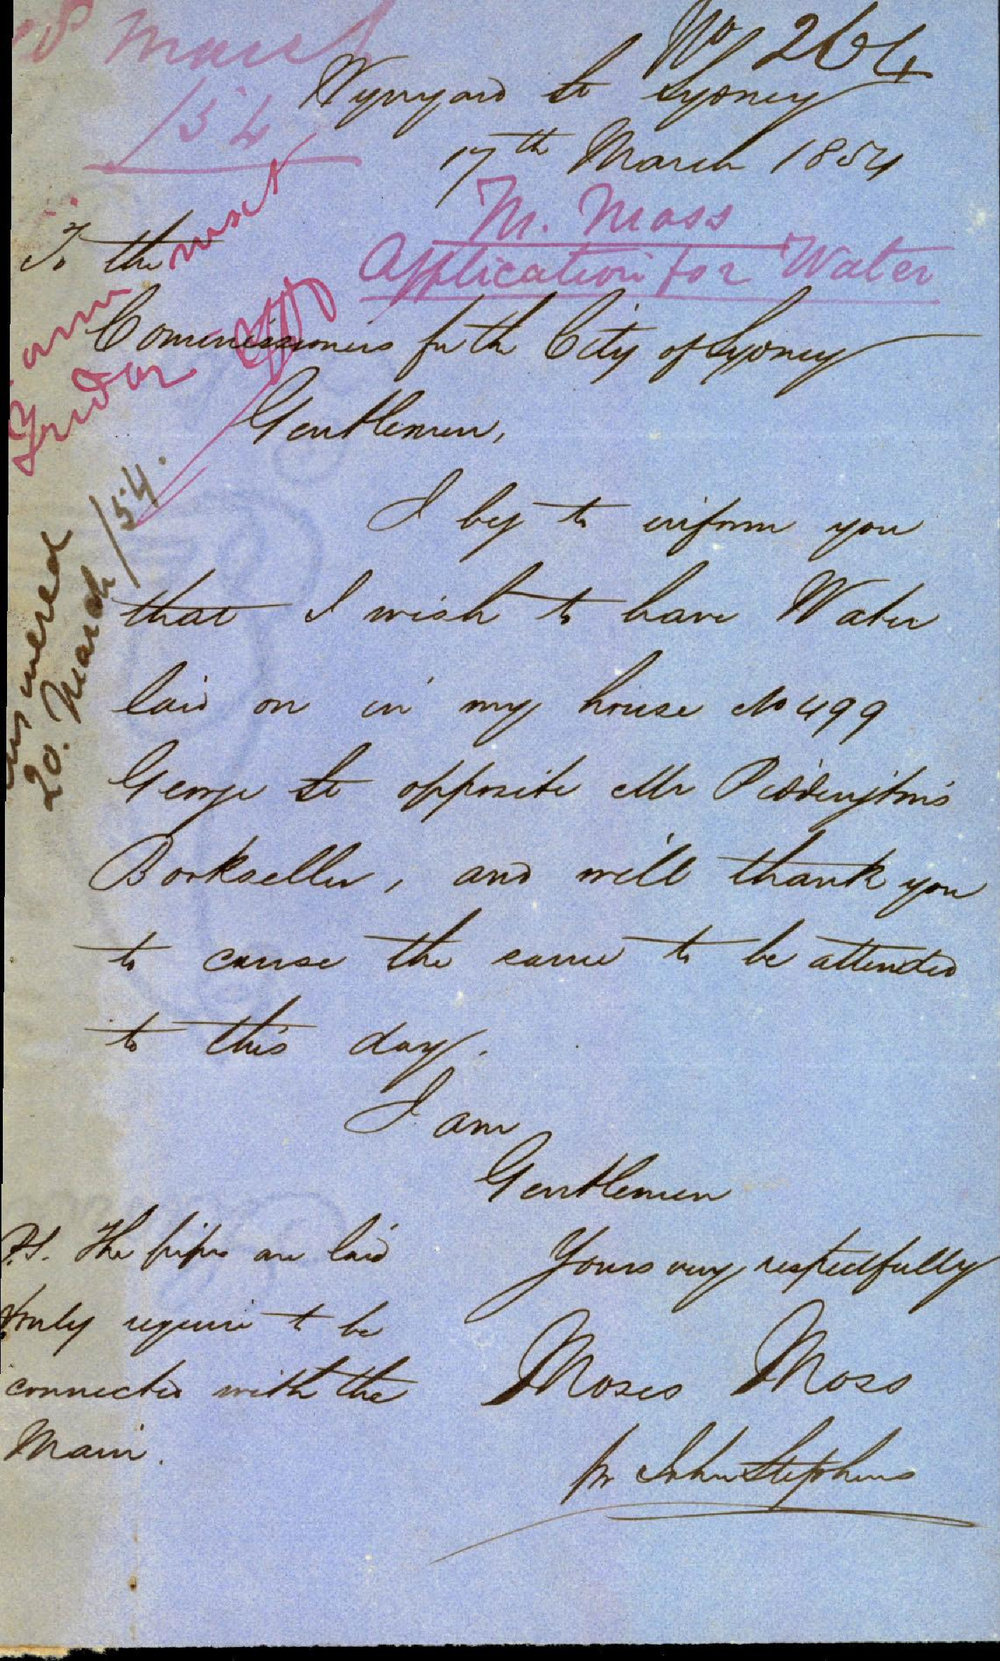 18 March
/54
No 264
Wynyard St Sydney
17th March 1854
M. Moss
Application for Water
To the
Commissioners for the City of Sydney
Gentlemen,
I beg to inform you
that I wish to have Water
laid on in my house No 499
George St opposite Mr Piddington's
Bookseller, and will thank you
to cause the same to be attended
to this day.
I am
Gentlemen
Yours very respectfully
Moses Moss
pr John Stephens
P.S. The pipes are laid
& only require to be
connected with the
Main.
Answered
20. March /54.